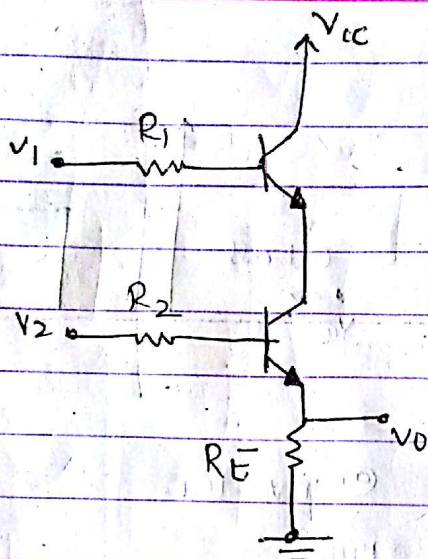 Vcc
R1
V1
R2
V2
V0
RE